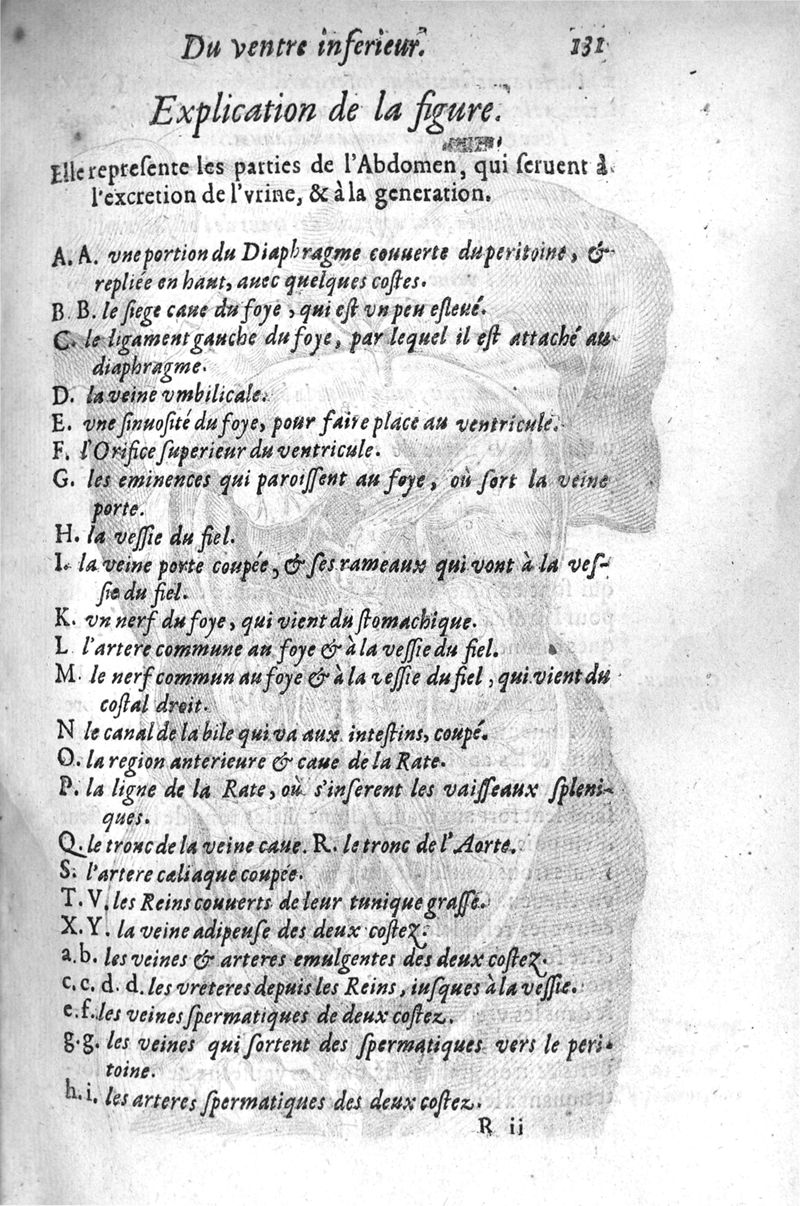 Du ventre inferieur. 131
Explication de la figure.
Elle represente les parties de l'Abdomen, qui seruent à
l'excretion de l'vrine, & à la generation.
A. A. vne portion du Diaphragme couuerte du peritoine, &
repliée en haut, auec quelques costes.
B B. le siege caue du foye, qui est vn peu esleué.
C. le ligament gauche du foye, par lequel il est attaché au
diaphragme.
D. la veine vmbilicale.
E. vne sinuosité du foye, pour faire place au ventricule.
F. l'Orifice superieur du ventricule.
G. les eminences qui paroissent au foye, où sort la veine
porte.
H. la vessie du fiel.
I. la veine porte coupée, & ses rameaux qui vont à la ves-
sie du fiel.
K. vn nerf du foye, qui vient du stomachique.
L l'artere commune au foye & à la vessie du fiel.
M. le nerf commun au foye & à la vessie du fiel, qui vient du
costal droit.
N le canal de la bile qui va aux intestins, coupé.
O. la region anterieure & caue de la Rate.
P. la ligne de la Rate, où s'inserent les vaisseaux spleni-
ques.
Q. le tronc de la veine caue. R. le tronc de l'Aorte.
S. l'artere caliaque coupée.
T. V. les Reins couuerts de leur tunique grasse.
X. Y. la veine adipeuse des deux costez.
a. b. les veines & arteres emulgentes des deux costez.
c. c. d. d. les vreteres depuis les Reins, iusques à la vessie.
e. f. les veines spermatiques de deux costez.
g. g. les veines qui sortent des spermatiques vers le peri-
toine.
h. i. les arteres spermatiques des deux costez.
R ii